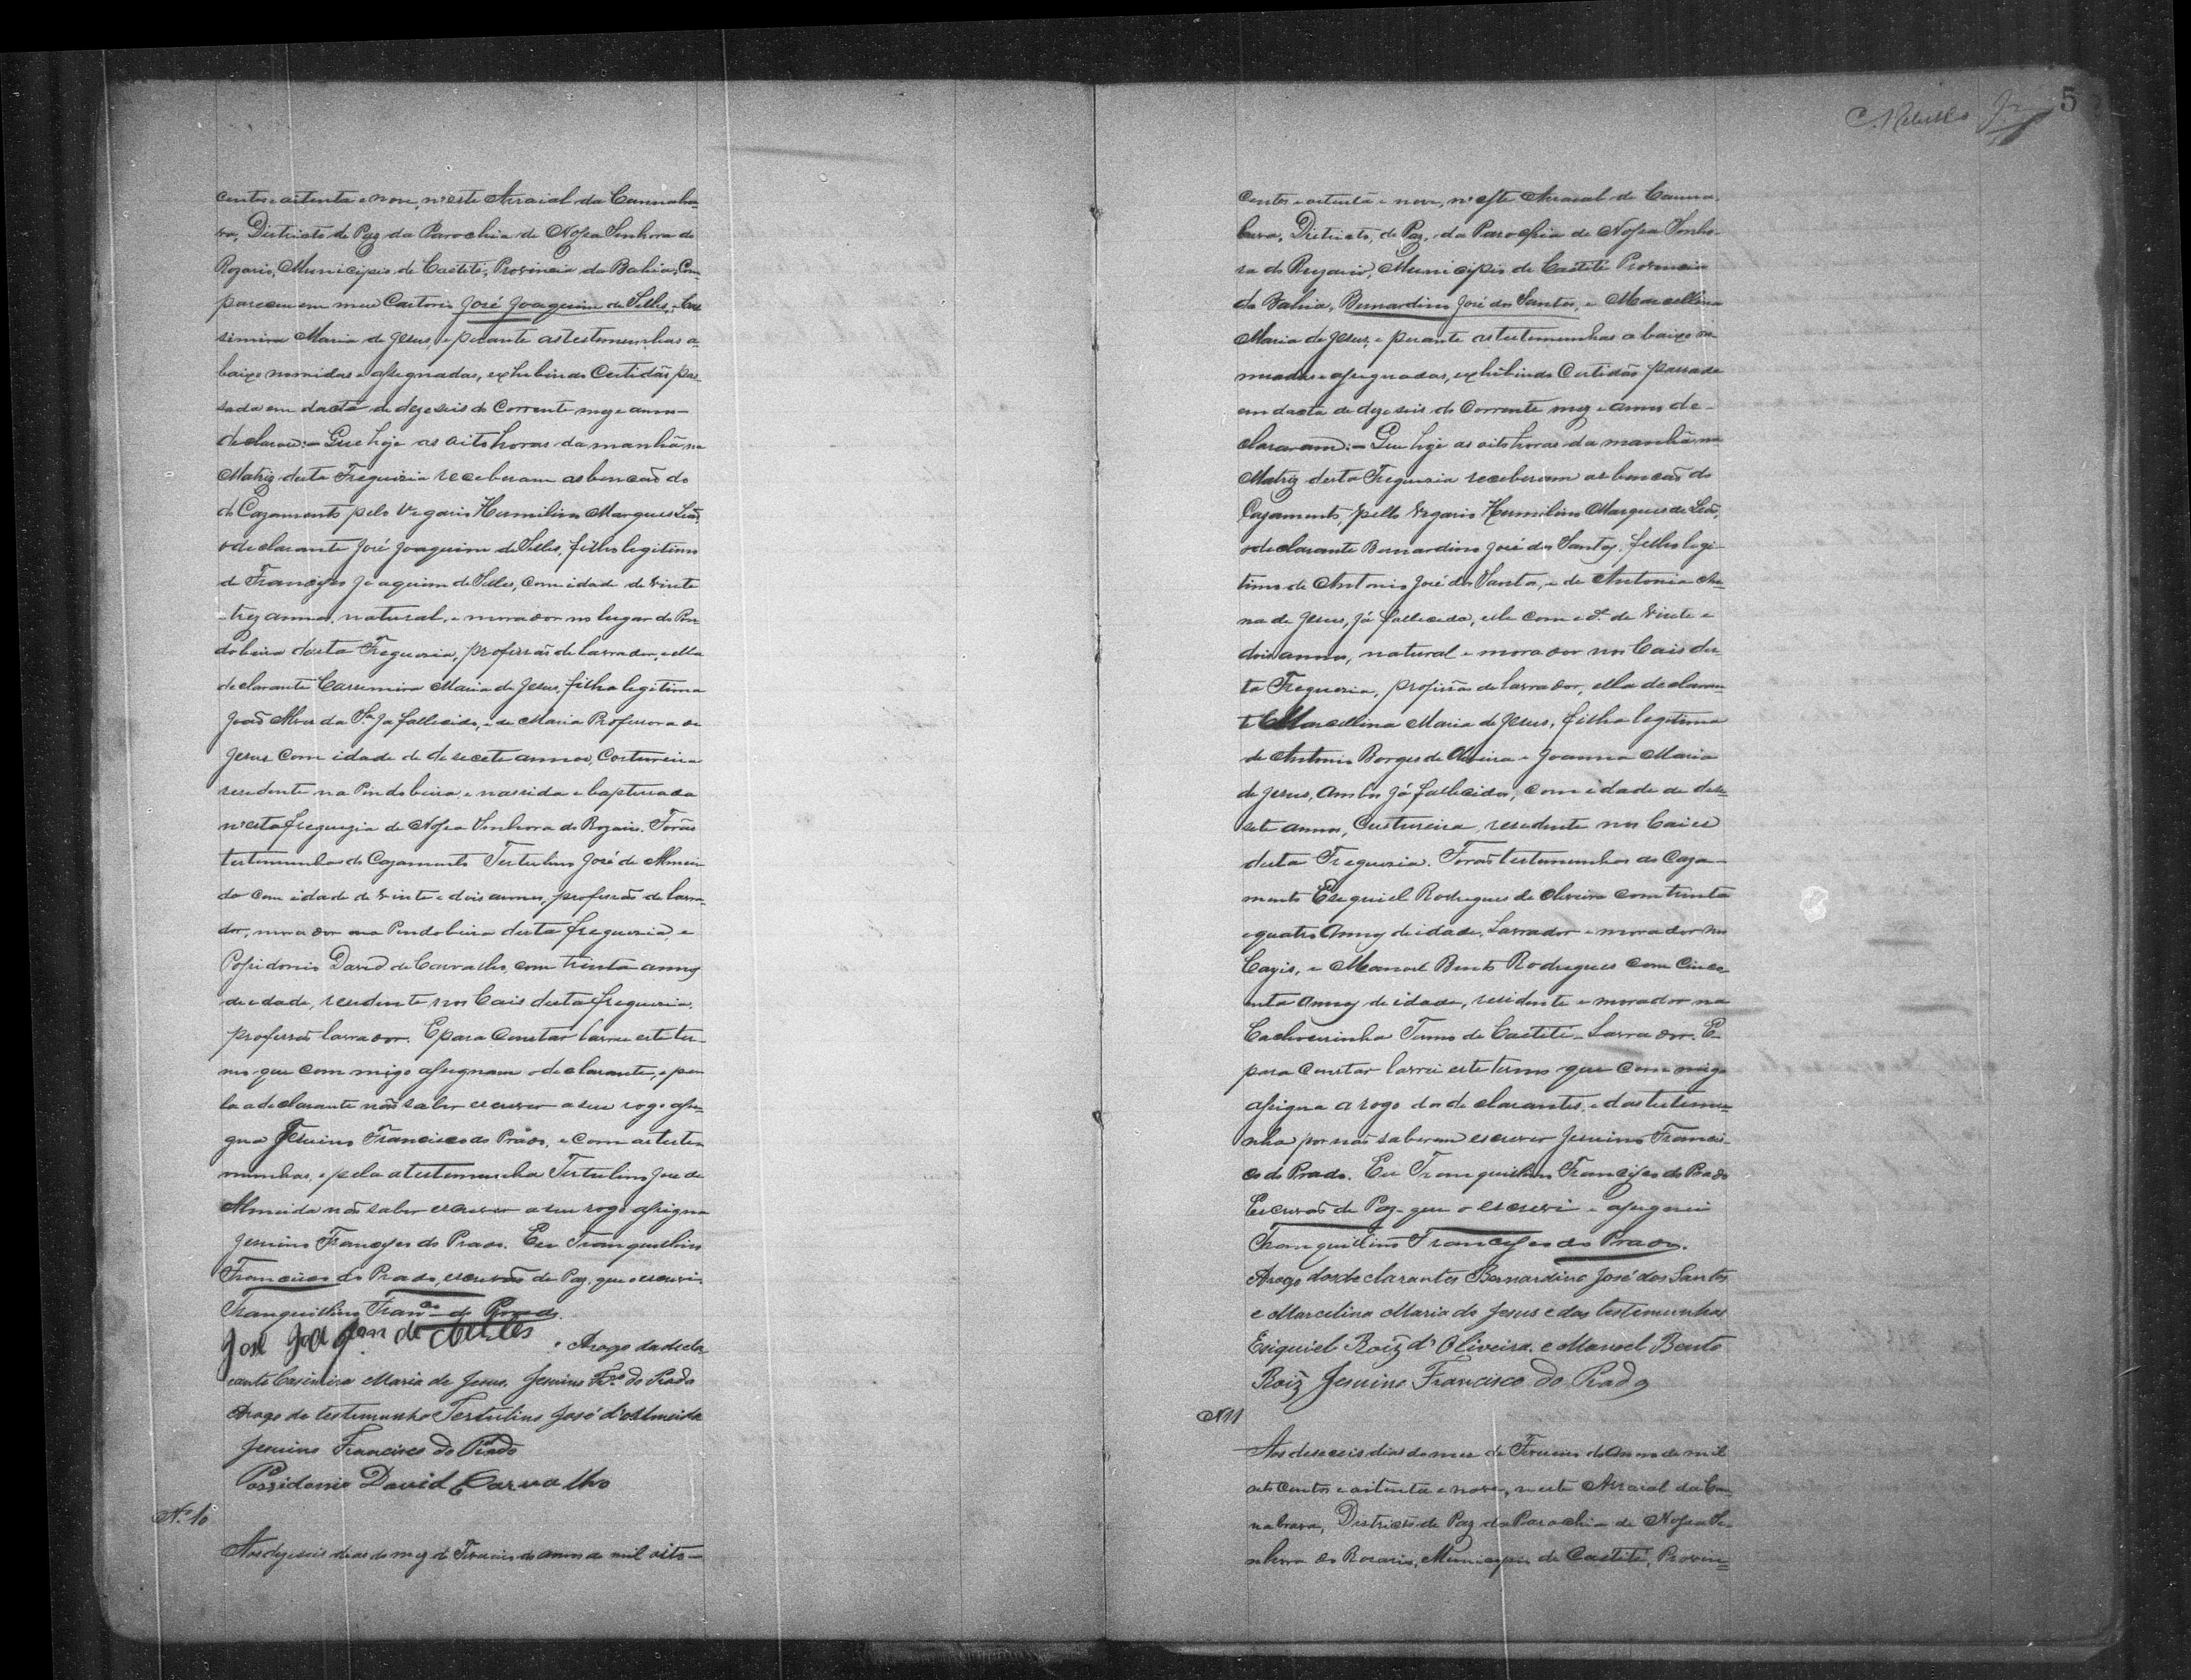 centos e oitenta e nove, n'este Arraial da Cannabra-
va, Districto de Paz da Parochia de Nossa Senhora do
Rozario, Municipio de Caetité, Provincia da Bahia, Com
pareceu em meu Cartorio José Joaquim de Telles, e Ca
simira Maria de Jesus, e perante as testemunhas a-
baixo nomidas e assignadas, exhibindo Certidão pas
sada em dacta de dezeseis do Corrente mez e anno-
declarou:- Que hoje as oito horas da manhã na
Matriz desta Freguizia receberam as bencaõ do
do Cazamento pelo Vegario Hermilino Marques Leão,
o declarante José Joaquim de Telles, filho legitimo
de Francisco Joaquim de Telles, com idade de vinte
e trez annos, natural, e morador no lugar do Pin
dobeira desta Freguesia, profissão de lavrador, e ella
declarante Casemira Maria de Jesus, filha legitima
João Alves da Sª ja fallecido, e de Maria Professora de
Jesus com idade de desecete annos, Costureira
residente na Pindobeira, e nascida e baptisada
n'esta freguezia de Nossa Senhora do Rozario. Forão
testemunha do Cazamento Tertulino José de Almei
da com idade de vinte e dois annos, profissão de lavra-
dor, morador na Pindobeira desta freguesia, e
Possidonio David de Carvalho, com trinta annos
de edade, residente nos Cais desta freguesia,
professão lavrador. E para Constar lavrei este ter-
mo que com migo assignam o declarante, e por
la a declarante não saber escrever a seu rogo assi-
gna Jesuino Francisco do Prado, e com as teste
munhas, e pela a testemunha Tertulino José de
Almeida não saber escrever a seu rogo assigna
Jesuino Francisco do Prado. Eu Tranquillino
Francisco do Prado, escrivão de Paz, que o escrevi.
Tranquillino Franco do Prado.
José Joaqm de Telles
Arogo da decla
rante Casimira Maria de Jesus. Jesuino Fco do Prado
Arogo da testemunha Tertulino José d'Almeida
Jesuino Francisco do Prado
Possidonio David Carvalho
Nº 10
Aos dezeseis dias do mez de Fevereiro do anno de mil oito-
C. Rebello Jr
5
centos e oitenta e nove, n'este Arraial de Canna-
brava, Districto, de Paz, da Parochia de Nossa Senho-
ra do Rozario, Municipio de Caetité Provincia
da Bahia, Bernardino José dos Santos, e Marcellina
Maria de Jesus, e perante as testemunhas a baixo no
meadas e assignadas, exhibindo Certidão passada
em dacta de dezeseis do Corrente mez e anno de-
clararam:- Que hoje as oito horas da manhã na
Matriz desta Freguesia receberam as bencaõ do
Cazamento, pello Vegario Hermilino Marques de Leão,
o declarante Bernardino José dos Santos, filho legi
timo de Antonio José dos Santos, e de Antonia An
na de Jesus, já fallecida, elle com ide de vinte e
dois annos, natural e morador nos Cais des
ta Freguesia, profissão de lavrador, ella declaran
te Marcellina Maria de Jesus, filha legitima
de Antonio Borges de Oliveira e Joanna Maria
de Jesus, ambos já fallecidos, com idade de dese
sete annos, Custureira, residente nos Caies
desta Freguesia. Forão testemunhas do Caza-
mento Esequiel Rodrigues de Oliveira com trinta
e quatro Annos de idade, Lavrador e morador no
Cayis, e Manoel Bento Rodrigues com Cinco
enta Annos de idade, residente e morador na
Cachoeirinha Termo de Caetité-Lavrador. E
para Constar lavrei este termo que com migo
assigna a rogo dos declarantes, e das testemu-
nha por não saberem escrever Jesuino Francis-
co do Prado. Eu Tranquillino Francisco do Prado
Escrivão de Paz que o escrevi e assignei
Tranquillino Francisco do Prado.
Arogo dos declarantes Bernardino José dos Santos
e Marcelina Maria de Jesus e das testemunhas
Esiquiel Roiz d'Oliveira e Manoel Bento
Roiz Jesuino Francisco do Prado
N11
Aos deseceis dias do mez de Fevereiro do Anno de mil
oito Centos e oitenta e nove, neste Arraial da Can
nabrava, Districto de Paz da Parochia de Nossa Se-
nhora do Rosario, Municipio de Caetité, Provin=